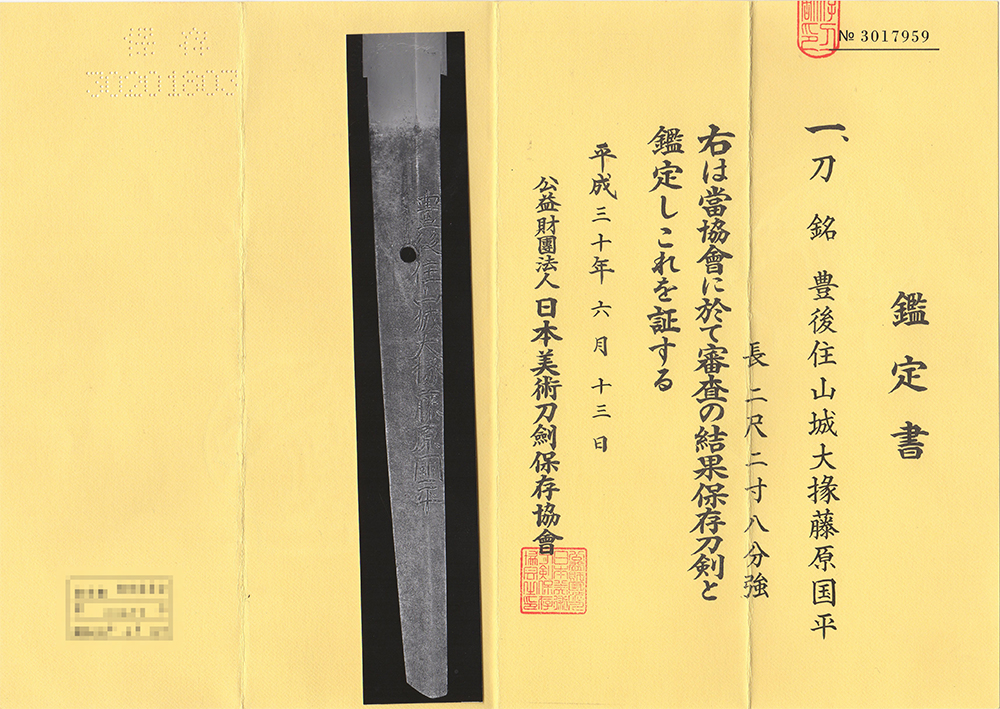 № 3017959
鑑定書
一、刀 銘 豊後住山城大掾藤原国平
長 二尺二寸八分強
右は當協會に於て審査の結果保存刀剣と
鑑定しこれを証する
平成三十年六月十三日
公益財團法人日本美術刀劍保存協會
豊後住山城大掾藤原国平
保存
30201603